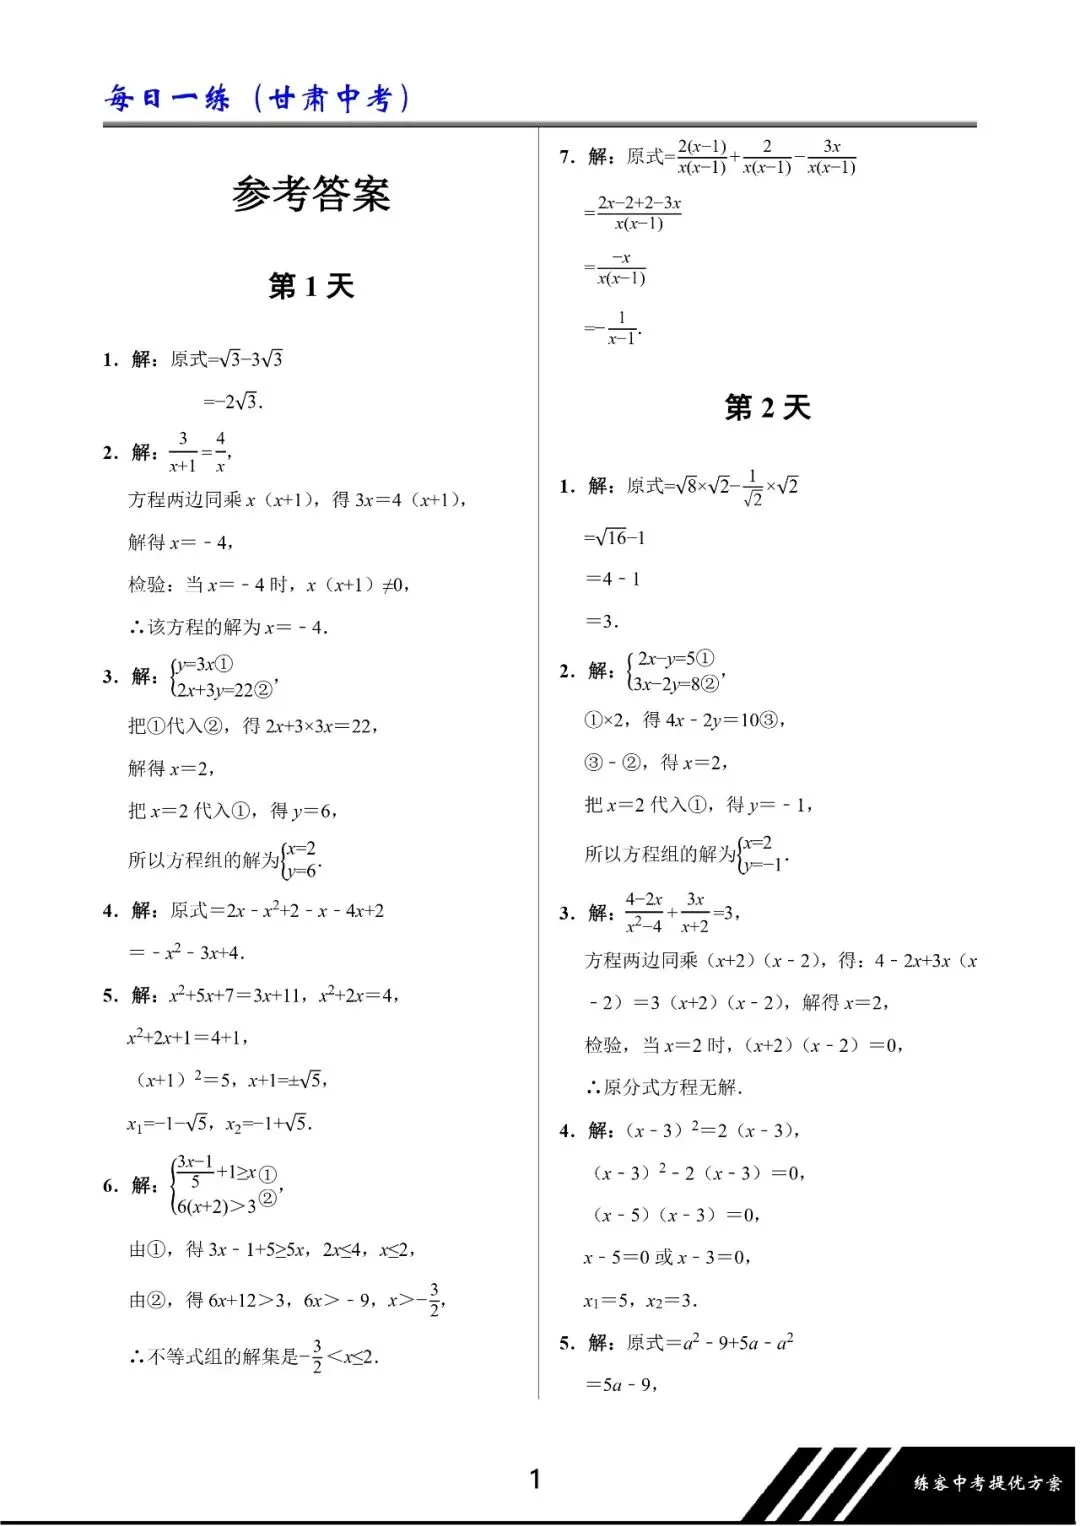 每日一练（甘肃中考）
参考答案
第 1 天
1．解：原式=√3−3√3
=−2√3．
2．解：3/(x+1)=4/x，
方程两边同乘 x（x+1），得 3x＝4（x+1），
解得 x＝﹣4，
检验：当 x＝﹣4 时，x（x+1）≠0，
∴该方程的解为 x＝﹣4．
3．解：{y=3x① 2x+3y=22②，
把①代入②，得 2x+3×3x＝22，
解得 x＝2，
把 x＝2 代入①，得 y＝6，
所以方程组的解为{x=2 y=6．
4．解：原式＝2x﹣x²+2﹣x﹣4x+2
＝﹣x²﹣3x+4．
5．解：x²+5x+7＝3x+11，x²+2x＝4，
x²+2x+1＝4+1，
（x+1）²＝5，x+1=±√5，
x₁=−1−√5，x₂=−1+√5．
6．解：{(3x−1)/5+1≥x① 6(x+2)＞3②，
由①，得 3x﹣1+5≥5x，2x≤4，x≤2，
由②，得 6x+12＞3，6x＞﹣9，x＞−3/2，
∴不等式组的解集是−3/2＜x≤2．
7．解：原式=2(x−1)/x(x−1)+2/x(x−1)−3x/x(x−1)
=(2x−2+2−3x)/x(x−1)
=−x/x(x−1)
=−1/(x−1)．
第 2 天
1．解：原式=√8×√2−1/√2×√2
=√16−1
＝4﹣1
＝3．
2．解：{2x−y=5① 3x−2y=8②，
①×2，得 4x﹣2y＝10③，
③﹣②，得 x＝2，
把 x＝2 代入①，得 y＝﹣1，
所以方程组的解为{x=2 y=−1．
3．解：(4−2x)/(x²−4)+3x/(x+2)=3，
方程两边同乘（x+2）（x﹣2），得：4﹣2x+3x（x
﹣2）＝3（x+2）（x﹣2），解得 x＝2，
检验，当 x＝2 时，（x+2）（x﹣2）＝0，
∴原分式方程无解．
4．解：（x﹣3）²＝2（x﹣3），
（x﹣3）²﹣2（x﹣3）＝0，
（x﹣5）（x﹣3）＝0，
x﹣5＝0 或 x﹣3＝0，
x₁＝5，x₂＝3．
5．解：原式＝a²﹣9+5a﹣a²
＝5a﹣9，
1
练客中考提优方案